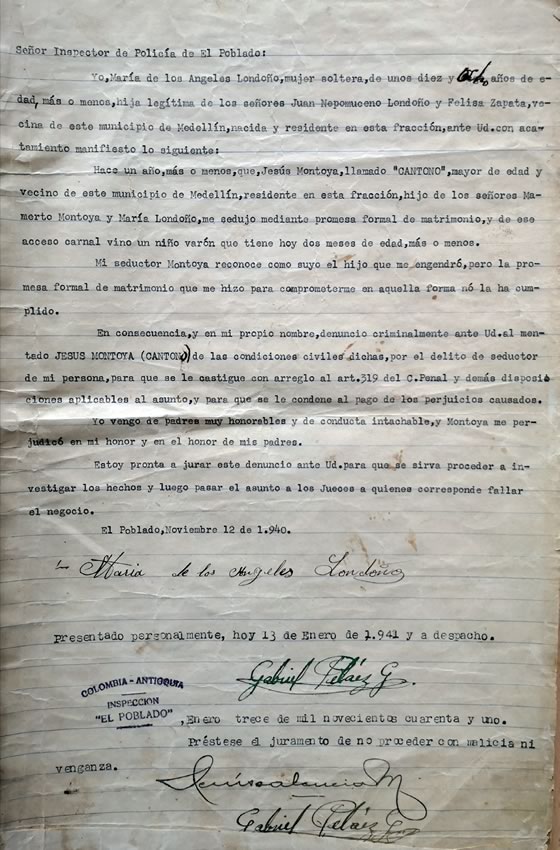 Señor Inspector de Policía de El Poblado:
Yo,María de los Angeles Londoño,mujer soltera,de unos diez y ocho años de e-
dad, más o menos,hija legítima de los señores Juan Nepomuceno Londoño y Felisa Zapata,ve-
cina de este municipio de Medellín,nacida y residente en esta fracción,ante Ud.con aca-
tamiento manifiesto lo siguiente:
Hace un año,más o menos,que,Jesús Montoya,llamado "CANTONO",mayor de edad y
vecino de este municipio de Medellín,residente en esta fracción,hijo de los señores Ma-
merto Montoya y María Londoño,me sedujo mediante promesa formal de matrimonio,y de ese
acceso carnal vino un niño varón que tiene hoy dos meses de edad,más o menos.
Mi seductor Montoya reconoce como suyo el hijo que me engendró,pero la pro-
mesa formal de matrimonio que me hizo para comprometerme en aquella forma nó la ha cum-
plido.
En consecuencia,y en mi propio nombre,denuncio criminalmente ante Ud.al men-
tado JESUS MONTOYA (CANTONO)de las condiciones civiles dichas,por el delito de seductor
de mi persona,para que se le castigue con arreglo al art.319 del C.Penal y demás disposi
ciones aplicables al asunto,y para que se le condene al pago de los perjuicios causados.
Yo vengo de padres muy honorables y de conducta intachable,y Montoya me per-
judicó en mi honor y en el honor de mis padres.
Estoy pronta a jurar este denuncio ante Ud.para que se sirva proceder a in-
vestigar los hechos y luego pasar el asunto a los Jueces a quienes corresponde fallar
el negocio.
El Poblado,Noviembre 12 de 1.940.
Maria de los Angeles Londoño
Presentado personalmente, hoy 13 de Enero de 1.941 y a despacho.
Gabriel Peláez G.
COLOMBIA - ANTIOQUIA
INSPECCION
"EL POBLADO"
,Enero trece de mil novecientos cuarenta y uno.
Préstese el juramento de no proceder con malicia ni
venganza.
Gabriel Peláez G.